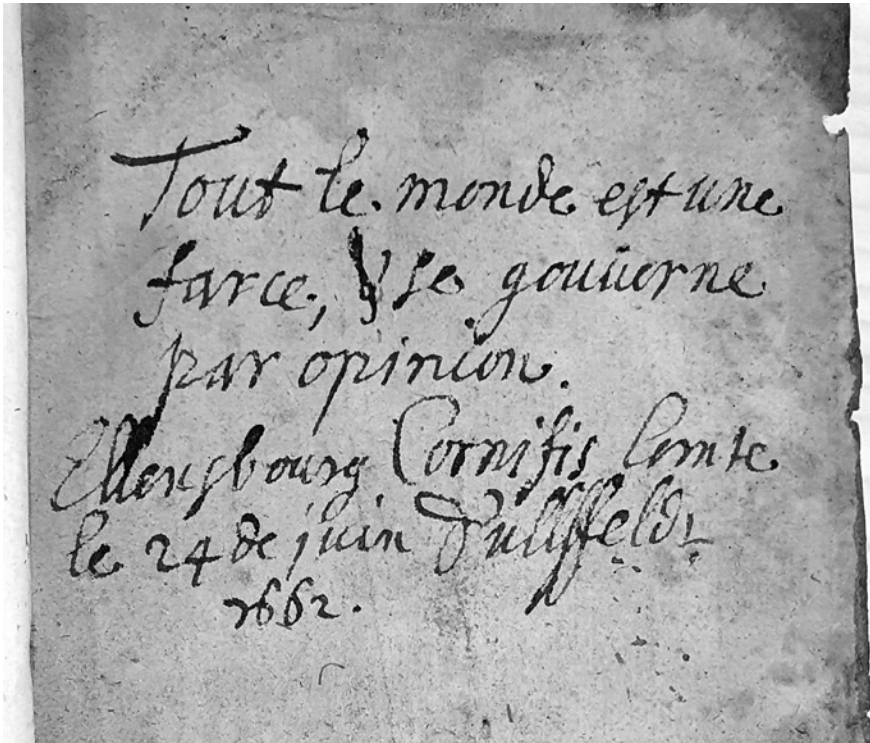 Tout le monde est une
farce, & se gouüerne
par opinion.
Ellensbourg Cornifis Comte
le 24 de juin d'ullffeldt
1662.